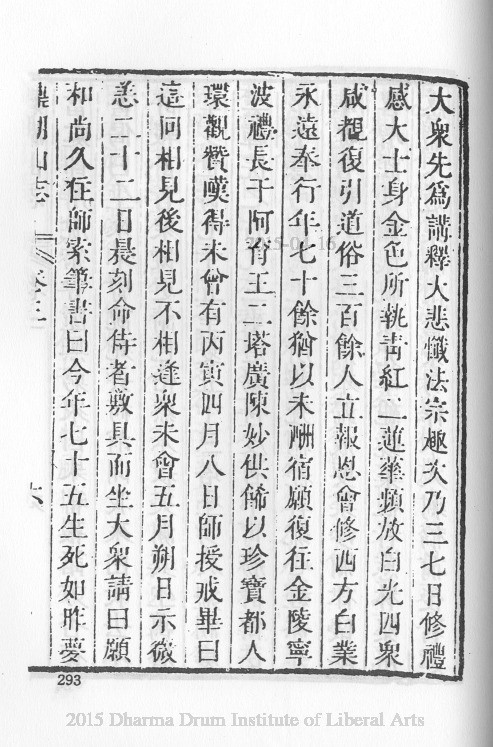 大眾先爲講釋大悲懺法宗趣次乃三七日修禮
感大士身金色所執青紅二蓮華頻放白光四眾
咸覩復引道俗三百餘人立報恩會修西方白業
永遠奉行年七十餘猶以未酬宿願復往金陵寧
波禮長干阿育王二塔廣陳妙供飾以珍寶都人
環觀贊嘆得未曾有丙寅四月八日師授戒畢曰
這回相見後相見不相逢眾未會五月朔日示微
恙二十二日晨刻命侍者敷具而坐大眾請曰願
和尚久住師索筆書曰今年七十五生死如昨夢
鼎湖山志 卷之三 六
293
2015 Dharma Drum Institute of Liberal Arts